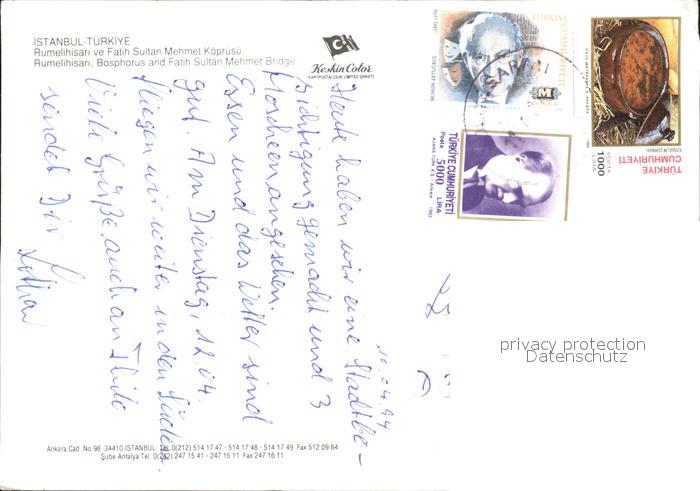 İSTANBUL-TÜRKİYE
Rumelihisarı ve Fatih Sultan Mehmet Köprüsü
Rumelihisarı, Bosphorus and Fatih Sultan Mehmet Bridge
Keskin Color
KARTPOSTALCILIK LIMITED ŞİRKETİ
TÜRKİYE CUMHURİYETİ
POSTA
LIRA
1000
TÜRKİYE
CUMHURİYETİ
TÜRKİYE CUMHURİYETİ
Posta 5000 LİRA
AJANS-TÜRK A.Ş. Ankara 1993
10.04.94
Heute haben wir eine Stadtbe-
sichtigung gemacht und 3
Moscheen angesehen.
Essen und das Wetter sind
gut. Am Dienstag, 12.04.
fliegen wir weiter in den Süden.
Viele Grüße, auch an
sendet Dir
Lothar
privacy protection
Datenschutz
Ankara Cad. No.98 34410 İSTANBUL Tel: 0(212) 514 17 47 - 514 17 48 - 514 17 49 Fax:512 09 64
Şube Antalya Tel: 0(242) 247 15 41 - 247 16 11 Fax:247 16 11